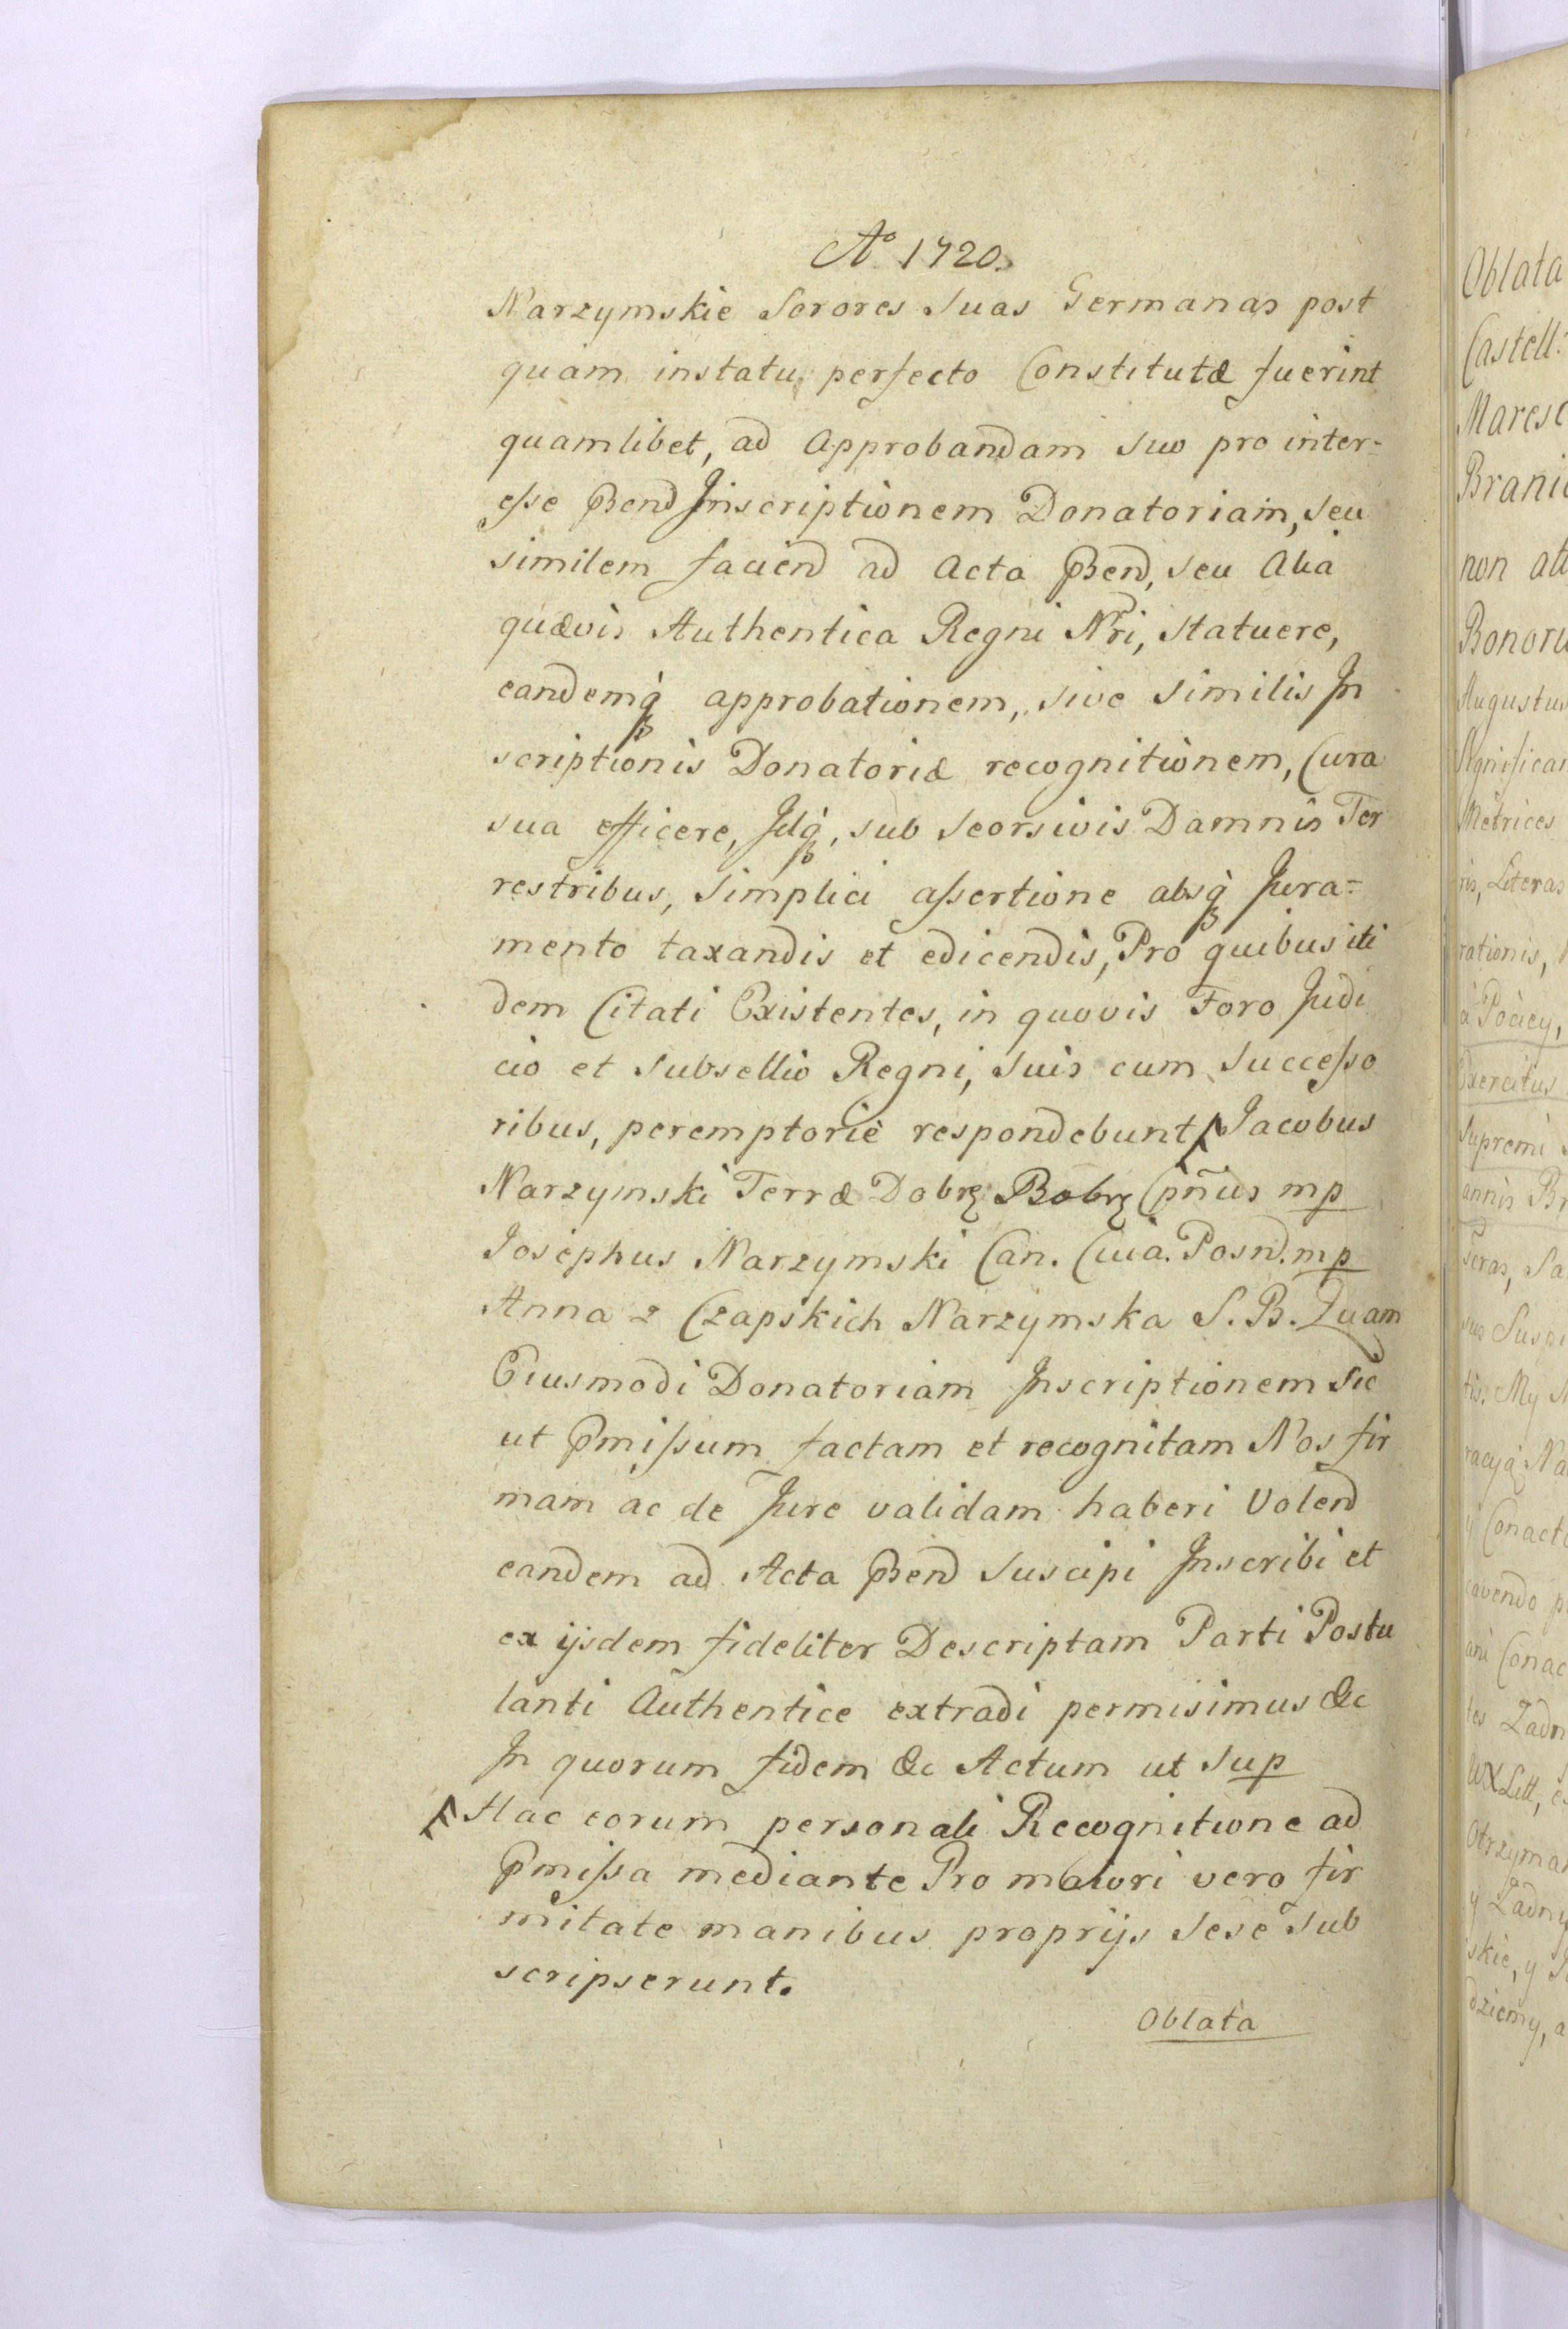 Aº 1720.
Narzymskie Sorores Suas Germanas post
quam instatu perfecto Constitutæ fuerint
quamlibet, ad Approbandam suo pro inter-
esse Pend Inscriptionem Donatoriam, seu
similem faciend ad Acta Pend, seu Alia
quævis Authentica Regni Nri, statuere,
eandemq approbationem, sive similis In
scriptionis Donatoriæ recognitionem, Cura
sua efficere, Idq, sub seorsivis Damnis Ter
restribus, simplici assertione absq Jura=
mento taxandis et edicendis, Pro quibus iti
dem Citati Existentes, in quovis Foro Judi
cio et subsellio Regni, suis cum successo
ribus, peremptoriè respondebunt Jacobus
Narzymski Terræ Dobrz Bobrz Cpñus mp
Josephus Narzymski Can. Cuia. Posnd. mp
Anna z Czapskich Narzymska S. B. Quam
Eiusmodi Donatoriam Inscriptionem Sic
ut Pmissum factam et recognitam Nos fir
mam ac de Jure validam haberi Volend
eandem ad Acta Pend suscipi Inscribi et
ex ijsdem fideliter Descriptam Parti Postu
lanti Authentice extradi permisimus &c
In quorum fidem &c Actum ut Sup
Hac eorum personali Recognitione ad
Pmissa mediante Pro maiori vero fir
mitate manibus proprijs sese sub
scripserunt.
Oblata
Oblata
Castell:
Maresc
Branic
non att
Bonoru
Augustus
Significam
Metrices
ris, Literas
rationis,
à Pociey,
Exercitus
Supremi
annis Br
teras, Sa
tis. My
racyą Na
y Conact
cavendo p
ani Conac
tes Zadn
WXLitt,
Otrzyma
y Zadny
skie, y
dziemy, a